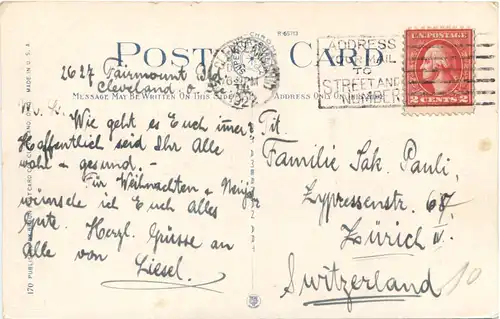 POST CARD
R-65113
2627 Fairmount Bld
Cleveland O.
MESSAGE MAY BE WRITTEN ON THIS SIDE
Wie geht es Euch immer?
Hoffentlich seid Ihr Alle
wohl & gesund. —
Für Weihnachten & Neujahr
wünsche ich Euch alles
Gute. Herzl. Grüsse an
Alle von
Liesel.
170 PUBLI
MADE IN U. S. A.
CLEVELAND, OHIO
1922
ADDRESS
YOUR MAIL
TO
STREET AND
NUMBER
U.S. POSTAGE
2 CENTS 2
ADDRESS ONLY ON
Tit.
Familie Jak. Pauli,
Zypressenstr. 68.
Zürich
Switzerland